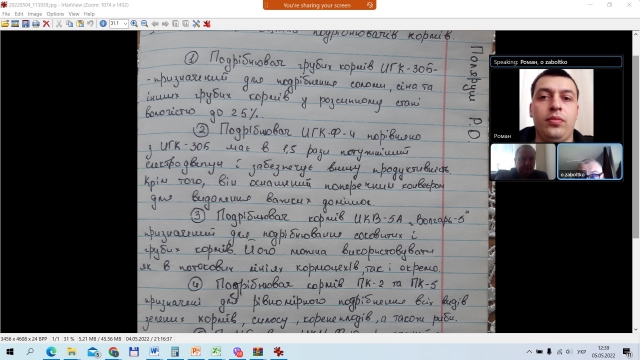 20220504_113939.jpg - IrfanView (Zoom: 1074 x 1432)
You're sharing your screen
File Edit Image Options View Help
31.1
подрібнювачів кормів
Поляруш Р.О.
① Подрібнювач грубих кормів ИГК-30Б-
- призначений для подрібнення соломи, сіна та
інших грубих кормів у розсипному стані
вологістю до 25%.
② Подрібнювач ИГК-Ф-4 порівняно
з ИГК-30Б має в 1,5 рази потужніший
електродвигун і забезпечує вищу продуктивність.
Крім того, він оснащений поперечним конвеєром
для видалення важких домішок.
③ Подрібнювач кормів ИКВ-5А „Волгарь-5"
призначений для подрібнювання соковитих і
грубих кормів. Його можна використовувати
як в потокових лініях кормоцехів, так і окремо.
④ Подрібнювач кормів ПК-2 та ПК-5
призначені для рівномірного подрібнення всіх видів
зелених кормів, силосу, коренеплодів, а також риби.
Speaking: Роман, o zaboltko
Роман
o zaboltko
3456 x 4608 x 24 BPP 1/1 31 % 5.21 MB / 45.56 MB 04.05.2022 / 21:16:37
УКР
12:39
05.05.2022